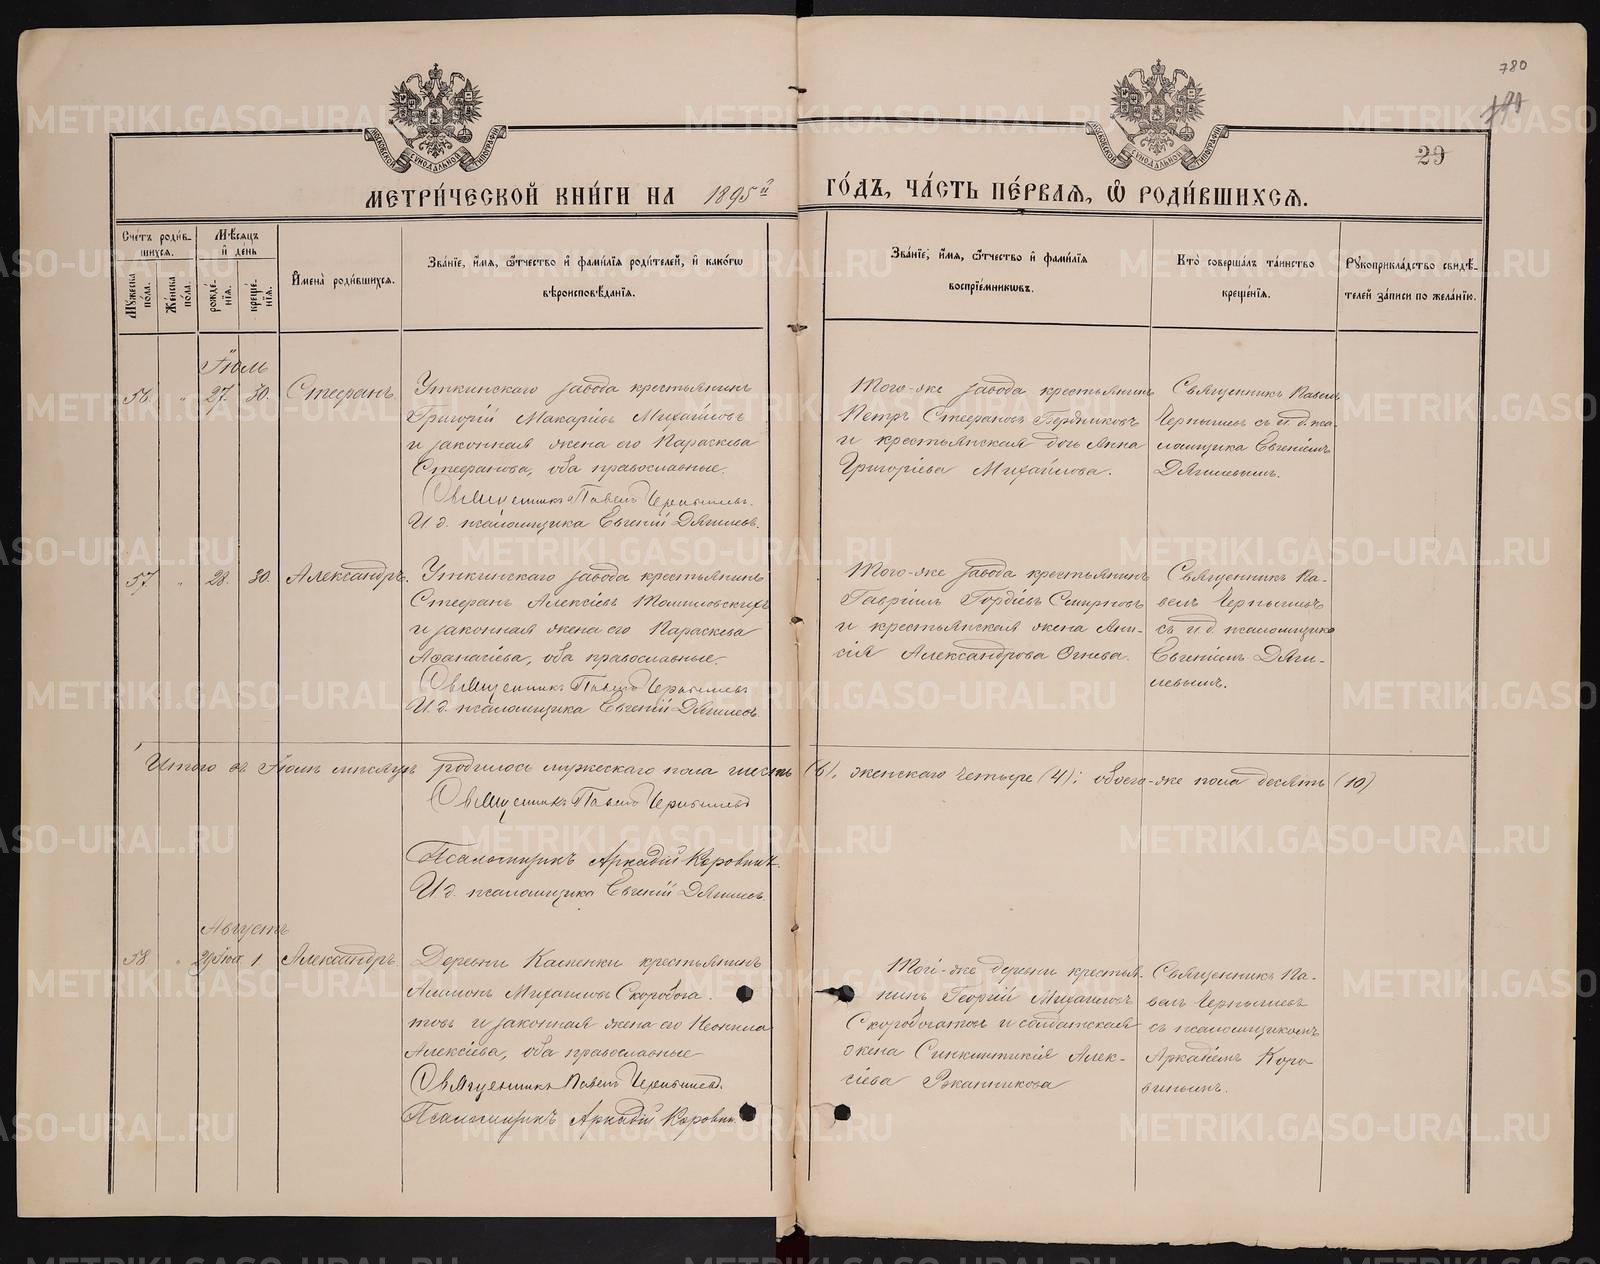 780
29
МЕТРИ́ЧЕСКОЙ КНИ́ГИ НА 1895й ГО́ДЪ, ЧА́СТЬ ПЕ́РВАЯ, Ѽ РОДИ́ВШИХСЯ.
МОСКОВСКОЙ СУНОДАЛЬНОЙ ТИПОГРАФІИ
МОСКОВСКОЙ СУНОДАЛЬНОЙ ТИПОГРАФІИ
Сче́тъ роди́в-
шихся.
Му́жеска по́ла.
Же́нска по́ла.
Мѣ́сяцъ и҆ де́нь
рожде́-
нїя.
креще́-
нїя.
И҆мена̀ роди́вшихся.
Зва́нїе, и҆́мя, ѻ҆́тчество и҆ фами́лїя роди́телей, и҆ како́гѡ
вѣроисповѣ́данїя.
Зва́нїе, и҆́мя, ѻ҆́тчество и҆ фами́лїя
воспрїе́мниковъ.
Кто̀ соверша́лъ та́инство
креще́нїя.
Рꙋкоприкла́дство свидѣ́-
телей за́писи по жела́нїю.
Іюль
56. " 27. 30. Стефанъ.
Уткинскаго завода крестьянинъ
Григорій Макаріевъ Михайловъ
и законная жена его Параскева
Стефанова, оба православные.
Священникъ Павелъ Чернышевъ.
И. д. псаломщика Евгеній Дягилевъ.
Того-же завода крестьянинъ
Петръ Стефановъ Бердниковъ
и крестьянская дочь Анна
Григоріева Михайлова.
Священникъ Павелъ
Чернышевъ съ и. д. пса-
ломщика Евгеніемъ
Дягилевымъ.
57. " 28. 30. Александръ.
Уткинскаго завода крестьянинъ
Стефанъ Алексіевъ Томиловскихъ
и законная жена его Параскева
Аѳанасіева, оба православные.
Священникъ Павелъ Чернышевъ
И. д. псаломщика Евгеній Дягилевъ.
Того-же завода крестьянинъ
Гавріилъ Гордіевъ Смирновъ
и крестьянская жена Ани-
сія Александрова Огнева.
Священникъ Па-
велъ Чернышевъ
съ и. д. псаломщика
Евгеніемъ Дяги-
левымъ.
Итого въ Іюлѣ мѣсяцѣ родилось мужескаго пола шесть (6), женскаго четыре (4); обоего-же пола десять (10)
Священникъ Павелъ Чернышевъ
Псаломщикъ Аркадій Коровинъ.
И. д. псаломщика Евгеній Дягилевъ.
Августъ
58 " 29 Іюл 1. Александръ.
Деревни Каменки крестьянинъ
Михаиловъ Скоробога-
товъ и законная жена его Неонила
Алексіева, оба православные
Священникъ Павелъ Чернышевъ.
Псаломщикъ Аркадій Коровинъ.
Той-же деревни крестья-
нинъ Георгій Михаиловъ
Скоробогатовъ и солдатская
жена Синклитикія Алек-
сіева Ржанникова
Священникъ Па-
велъ Чернышевъ
съ псаломщикомъ
Аркадіемъ Коро-
винымъ.
METRIKI.GASO-URAL.RU